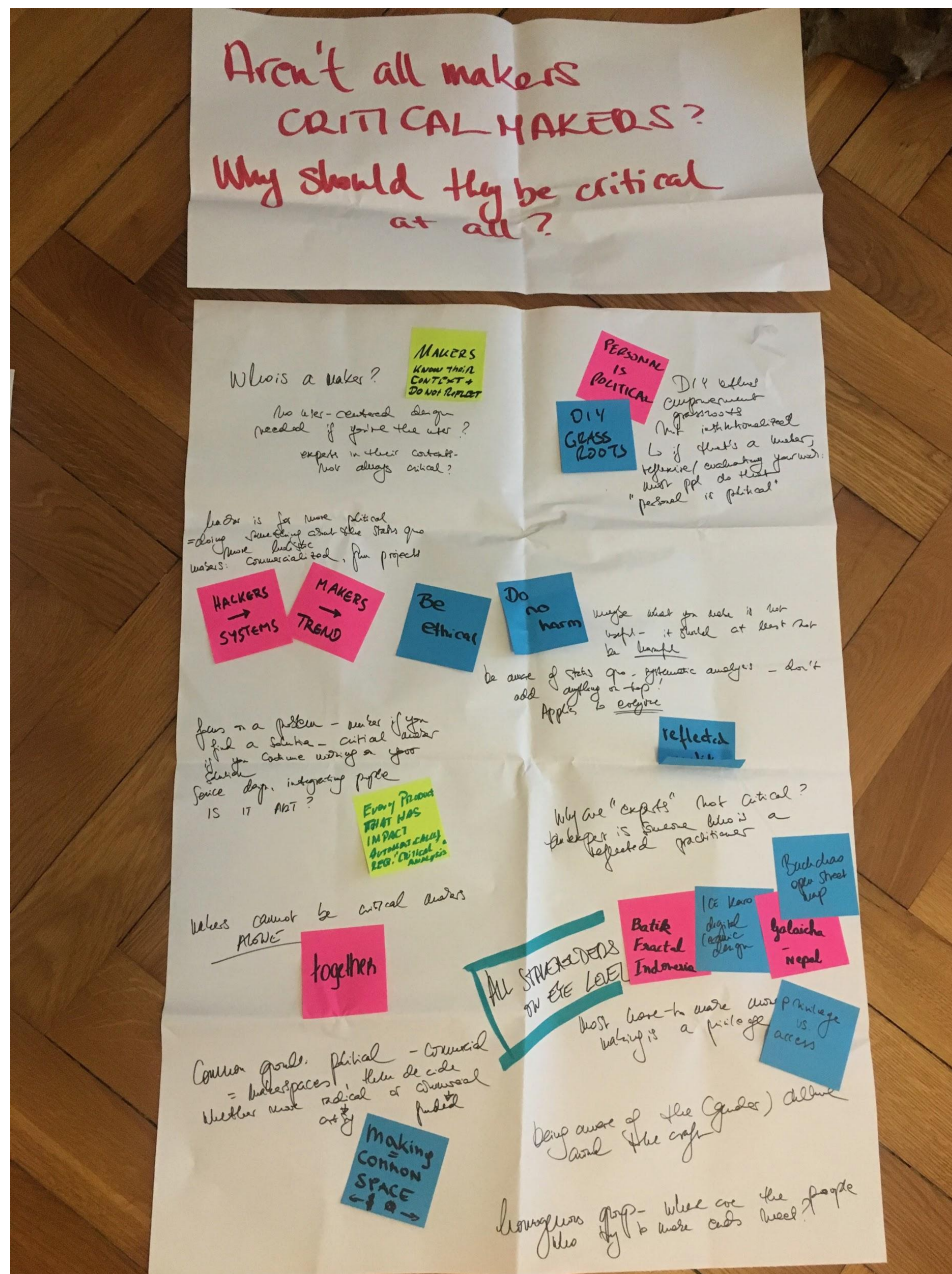 Aren't all makers
CRITICAL MAKERS?
Why should they be critical
at all?
Who is a maker?
MAKERS
KNOW THEIR
CONTEXT +
DO NOT REFLECT
No user-centered design
needed if you're the user?
experts in their contexts-
not always critical?
PERSONAL
IS
POLITICAL
DIY
GRASS
ROOTS
DIY ethos
empowerment
grassroots
not institutionalized
↳ if that's a maker,
reflexive/evaluating your work.
most ppl do that
"personal is political"
hacker is far more political
=doing something about the status quo
more holistic
makers: commercialized, fun projects
HACKERS
→
SYSTEMS
MAKERS
→
TREND
Be
ethical
Do
no
harm
maybe what you make is not
useful - it should at least not
be harmful
be aware of status quo - systematic analysis - don't
add anything on top!
Applies to everyone
focus on a problem - maker if you
find a solution - critical maker
if you continue working on your
solution
days, integrating people
IS IT ART?
reflected
EVERY PRODUCT
THAT HAS
IMPACT
AUTOMATICALLY
REQ. "CRITICAL"
ANALYSIS
Why are "experts" not critical?
is someone who is a
reflected practitioner
Makers cannot be critical makers
ALONE
together
ALL STAKEHOLDERS
ON EYE LEVEL
Batik
Fractal
Indonesia
ICE
digital
design
Galaicha
-
Nepal
open street
map
most have to make
making is a privilege
privilege
vs.
access
Common goods. political - commercial
= makerspaces, then decide
whether more radical or commercial
artsy funded
making
=
COMMON
SPACE
being aware of the (gender)
the craft
homogenous group- where are the people
who try to make ends meet?